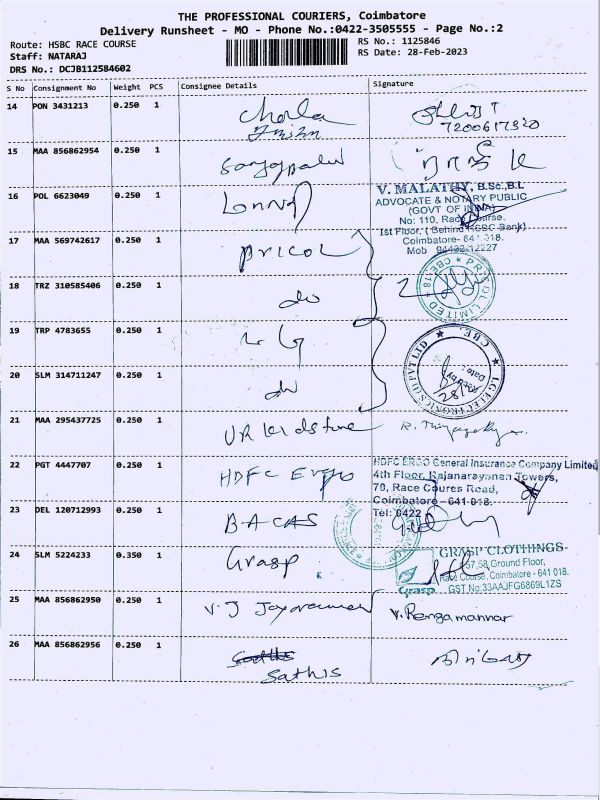 THE PROFESSIONAL COURIERS, Coimbatore
Delivery Runsheet - MO - Phone No.:0422-3505555 - Page No.:2
Route: HSBC RACE COURSE
RS No.: 1125846
Staff: NATARAJ
RS Date: 28-Feb-2023
DRS No.: DCJB112584602
S No Consignment No Weight PCS Consignee Details Signature
14 PON 3431213 0.250 1 Chola
7200617320
15 MAA 856862954 0.250 1
16 POL 6623049 0.250 1
V. MALATHY, B.Sc.,B.L
ADVOCATE & NOTARY PUBLIC
(GOVT OF INDIA)
No: 110, Race Course.
1st Floor, ( Behind HSBC Bank)
Coimbatore- 641 018.
17 MAA 569742617 0.250 1 PRICOL
18 TRZ 310585406 0.250 1 do
PRICOL LIMITED * CBE-18 *
19 TRP 4783655 0.250 1 LG
20 SLM 314711247 0.250 1 do
LG ELECTRONICS (I) PVT LTD * CBE. *
21 MAA 295437725 0.250 1
22 PGT 4447707 0.250 1 HDFC Ergo
HDFC ERGO General Insurance Company Limited
4th Floor, Rajanarayanan Towers,
70, Race Coures Road,
Coimbatore - 641 018.
Tel: 0422
23 DEL 120712993 0.250 1 BACAS
24 SLM 5224233 0.350 1 Grasp
GRASP CLOTHINGS
57,58, Ground Floor,
Race Course, Coimbatore - 641 018.
Grasp GST No:33AAJFG6869L1ZS
25 MAA 856862950 0.250 1 V.J Jayaraman V. Rengamannar
26 MAA 856862956 0.250 1
Sathis